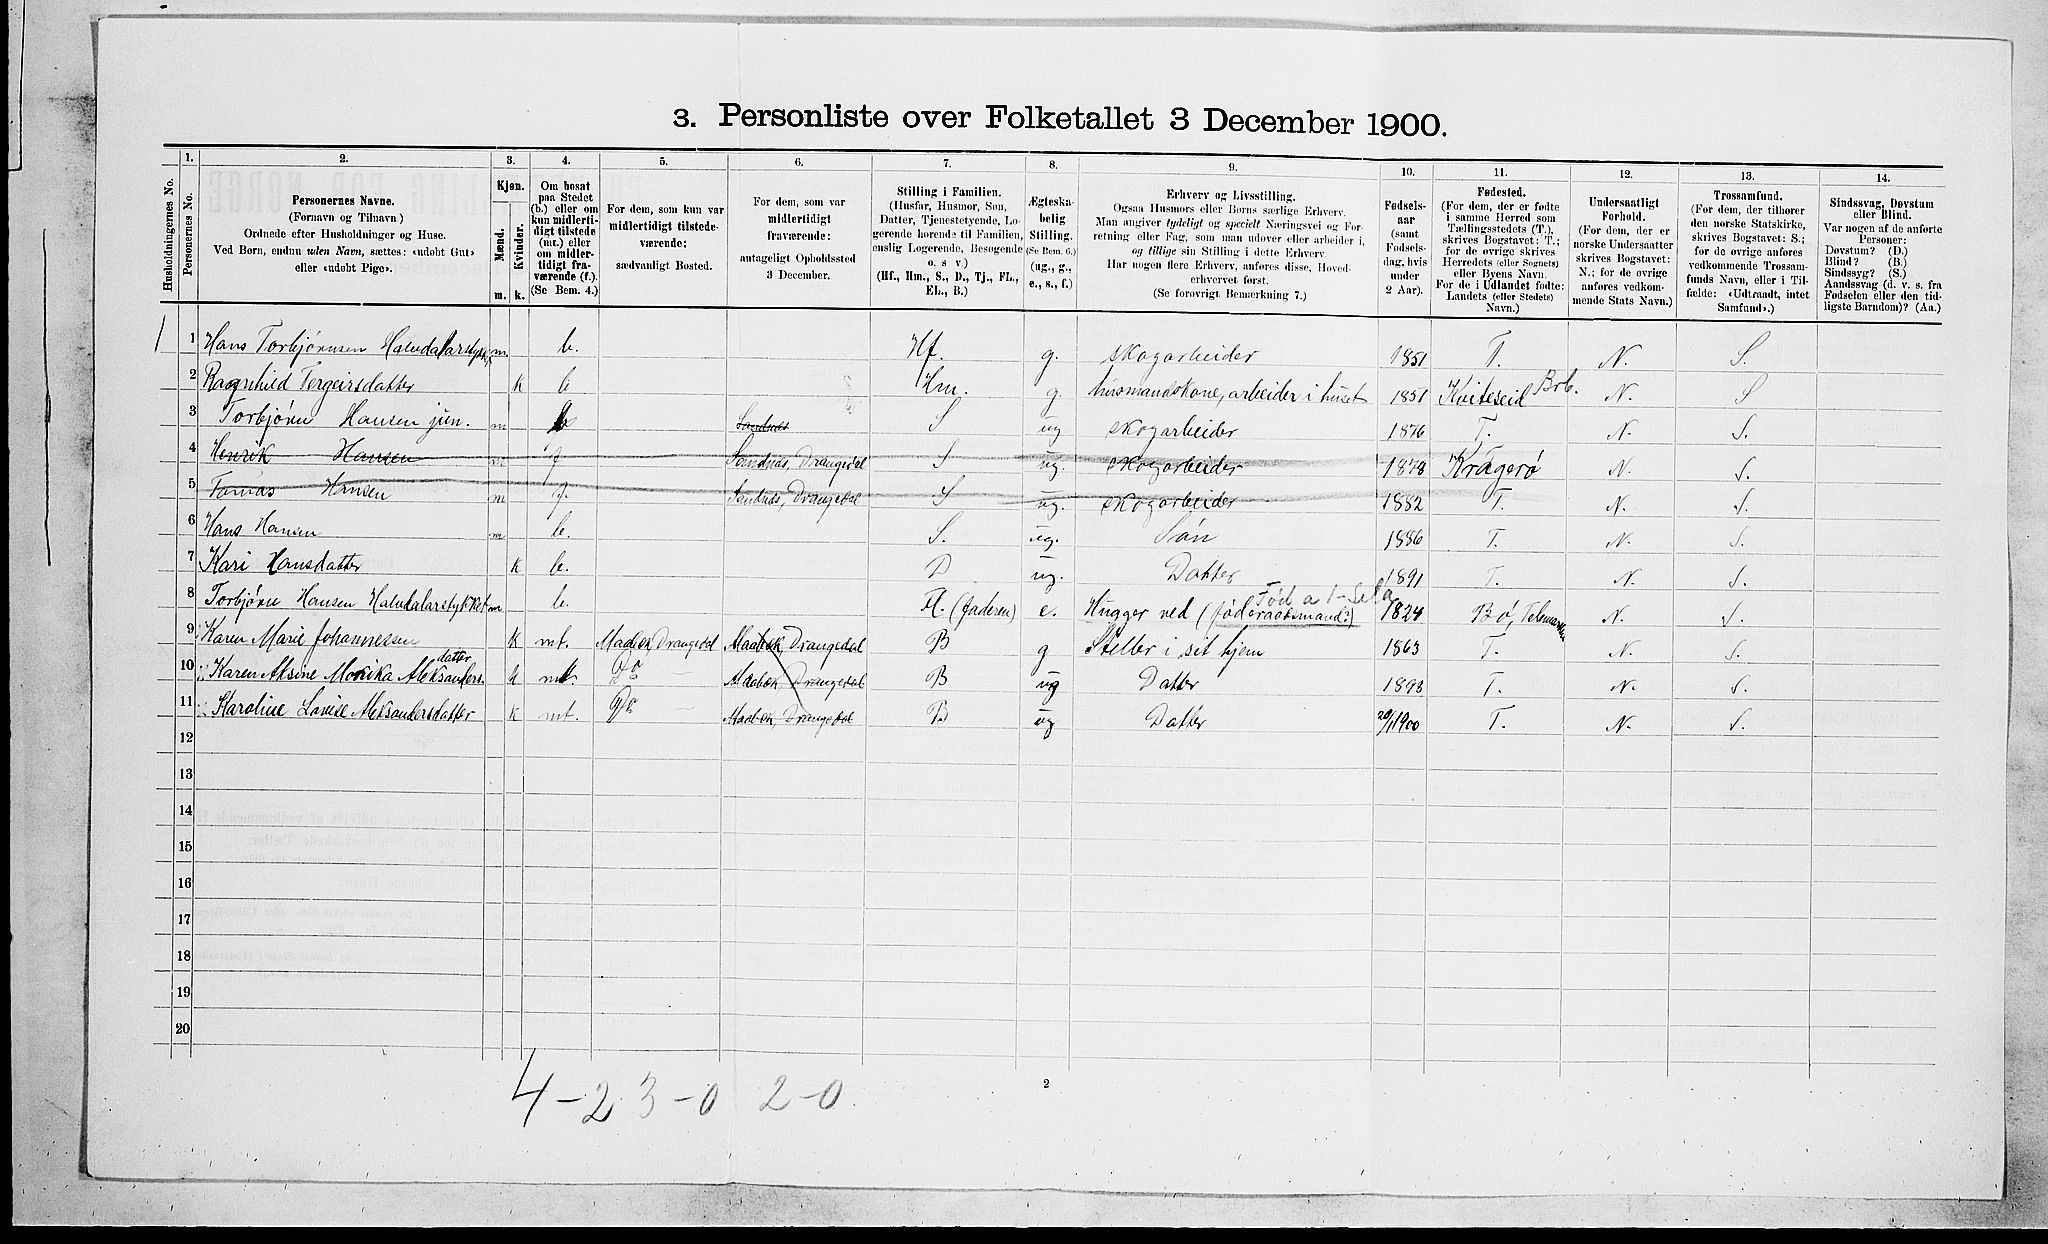 3. Personliste over Folketallet 3 December 1900.
1. 2. 3. 4. 5. 6. 7. 8. 9. 10. 11. 12. 13. 14.
Husholdningernes No.
Personernes No.
Personernes Navne.
(Fornavn og Tilnavn.)
Ordnede efter Husholdninger og Huse.
Ved Børn, endnu uden Navn, sættes: «udøbt Gut»
eller «udøbt Pige».
Kjøn.
Mænd.
Kvinder.
m. k.
Om bosat
paa Stedet
(b.) eller om
kun midlerti-
digt tilstede
(mt.) eller
om midler-
tidigt fra-
værende (f.).
(Se Bem. 4.)
For dem, som kun var
midlertidigt tilstede-
værende:
sædvanligt Bosted.
For dem, som var
midlertidigt
fraværende:
antageligt Opholdssted
3 December.
Stilling i Familien.
(Husfar, Husmor, Søn,
Datter, Tjenestetyende, Lo-
gerende hørende til Familien,
enslig Logerende, Besøgende
o. s v.)
(Hf., Hm., S., D., Tj., FL.,
EL., B.)
Ægteska-
belig
Stilling.
(Se Bem. 6.)
(ug., g.,
e., s., f.)
Erhverv og Livsstilling.
Ogsaa Husmors eller Børns særlige Erhverv.
Man angiver tydeligt og specielt Næringsvei og For-
retning eller Fag, som man udøver eller arbeider i,
og tillige sin Stilling i dette Erhverv.
Har nogen flere Erhverv, anføres disse, Hoved-
erhvervet først.
(Se forøvrigt Bemærkning 7.)
Fødsels-
aar
(samt
Fødsels-
dag, hvis
under
2 Aar).
Fødested.
(For dem, der er fødte
i samme Herred som
Tællingsstedets (T.),
skrives Bogstavet: T.;
for de øvrige skrives
Herredets (eller Sognets)
eller Byens Navn.
For de i Udlandet fødte:
Landets (eller Stedets)
Navn.)
Undersaatligt
Forhold.
(For dem, der er
norske Undersaatter
skrives Bogstavet:
N.; for de øvrige
anføres vedkom-
mende Stats Navn.)
Trossamfund.
(For dem, der tilhører
den norske Statskirke,
skrives Bogstavet: S.;
for de øvrige anføres
vedkommende Trossam-
funds Navn, eller i Til-
fælde: «Udtraadt, intet
Samfund».)
Sindssvag, Døvstum
eller Blind.
Var nogen af de anførte
Personer:
Døvstum? (D.)
Blind? (B.)
Sindssyg? (S.)
Aandssvag (d. v. s. fra
Fødselen eller den tid-
ligste Barndom)? (Aa.)
1 1 Hans Torbjørnsen Halvdalarstykket m. b. Hf. g. skogarbeider 1851 T. N. S.
2 Ragnhild Tergeirsdatter k b Hm. g. husmandskone, arbeider i huset 1851 Kviteseid Brb. N. S
3 Torbjørn Hansen jun. m b Sandnes S ug skogarbeider 1876 T. N. S.
4 Henrik Hansen m f Sandnes, Drangedal S ug. skogarbeider 1878 Kragerø N. S.
5 Tomas Hansen m f. Sandnes, Drangedal S ug. skogarbeider 1882 T. N. S.
6 Hans Hansen m b. S. ug. Søn 1886 T. N. S.
7 Kari Hansdatter k b. D ug. Datter 1891 T. N. S.
8 Torbjørn Hansen Halvdalarstykket m b. Fl. (faderen) e. Hugger ved (føderaadsmand?) 1824 Bø, Telemarken N. S.
9 Karen Marie Johannessen k mt. Maabek Drangedal Maabek Drangedal B g Steller i sit hjem 1863 T. N. S.
10 Karen Aksine Monika Aleksanders. datter k mt. Do Maabek Drangedal B ug Datter 1898 T. N. S.
11 Karoline Lovise Aleksandersdatter k mt. Do Maabek, Drangedal B ug Datter 20/1 1900 T. N. S.
12
13
14
15
16
17
18
19
20
4-2 3-0 2-0
2